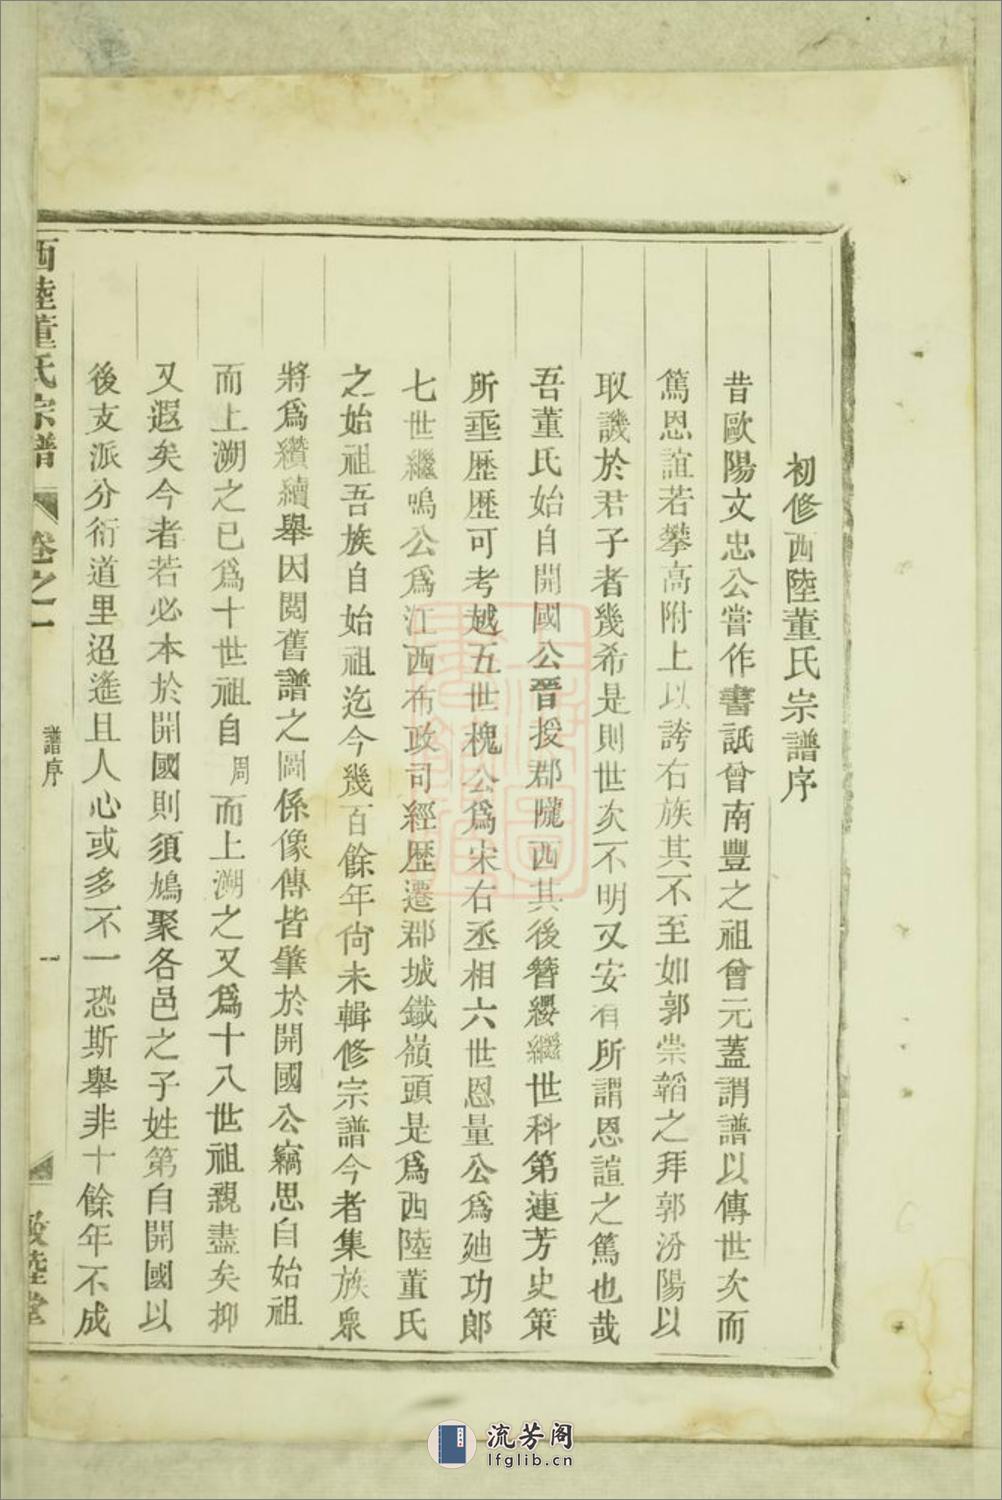 初修西陸董氏宗譜序
昔歐陽文忠公嘗作書詆曾南豐之祖曾元蓋謂譜以傳世次而
篤恩誼若攀高附上以誇右族其不至如郭崇韜之拜郭汾陽以
取譏於君子者幾希是則世次不明又安有所謂恩誼之篤也哉
吾董氏始自開國公晉授郡隴西其後簪纓繼世科第連芳史策
所埀歷歷可考越五世槐公爲宋右丞相六世恩量公爲廸功郎
七世繼鳴公爲江西布政司經歷遷郡城鐵嶺頭是爲西陸董氏
之始祖吾族自始祖迄今幾百餘年尙未輯修宗譜今者集族衆
將爲纘續舉因閱舊譜之圖係像傳皆肇於開國公竊思自始祖
而上溯之已爲十世祖自周而上溯之又爲十八世祖親盡矣抑
又遐矣今者若必本於開國則須鳩聚各邑之子姓第自開國以
後支派分衍道里迢遙且人心或多不一恐斯舉非十餘年不成
西陸董氏宗譜 卷之一 譜序 一 敬陸堂
流芳阁
lfglib.cn